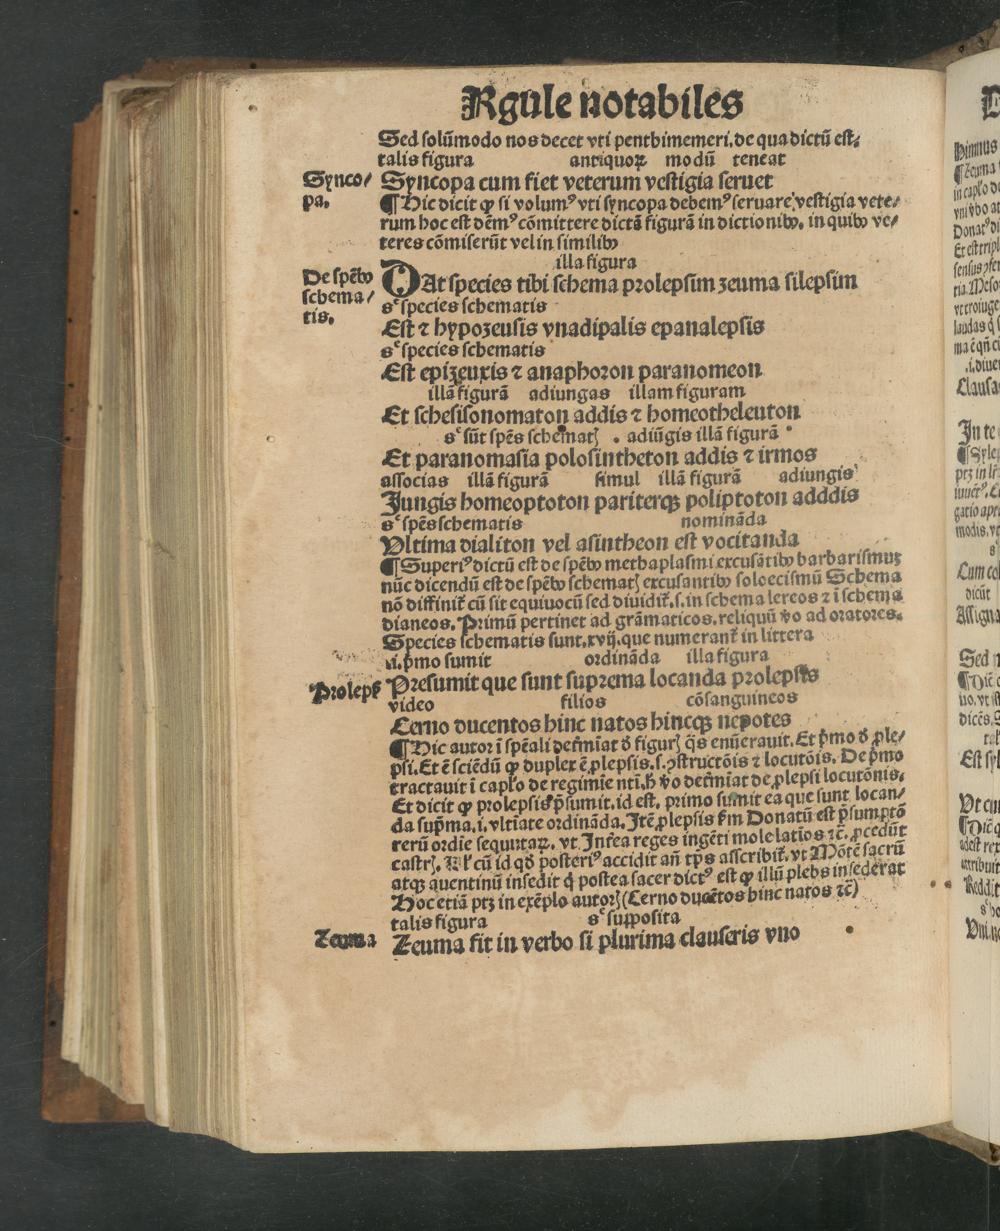 Rgule notabiles
Sed solũmodo nos decet vti penthimemeri. de qua dictũ est⸗
talis figura antiquoꝝ modũ teneat
Synco⸗ Syncopa cum fiet veterum vestigia seruet
pa. ¶ Hic dicit ꝙ si volumꝰ vti syncopa debemꝰ seruare vestigia vete⸗
rum hoc est dẽmꝰ cõmittere dictã figurã in dictionibꝰ. in quibꝰ ve⸗
teres cõmiserũt vel in similibꝰ
illa figura
De spẽbꝰ schema⸗ tis. DAt species tibi schema prolepsim zeuma silepsim
sᶜ species schematis
Est ⁊ hypozeusis vnadipalis epanalepsis
sᶜ species schematis
Est epizeuxis ⁊ anaphoron paranomeon
illã figurã adiungas illam figuram
Et schesisonomaton addis ⁊ homeotheleuton
sᶜ sũt spẽs schematꝭ . adiũgis illã figurã
Et paranomasia polosintheton addis ⁊ irmos
associas illã figurã simul illã figurã adiungis
Jungis homeoptoton pariterqꝫ poliptoton adddis
sᶜ spẽs schematis nominãda
Vltima dialiton vel asintheon est vocitanda
¶ Superiꝰ dictũ est de spẽbꝰ methaplasmi excusãtibꝰ barbarismuꝫ
nũc dicendũ est de spẽbꝰ schematꝭ excusantibꝰ soloecismũ Schema
nõ diffinit̃ cũ sit equiuocũ sed diuidit̃. s. in schema lereos ⁊ ĩ schema
dianeos. Primũ pertinet ad grãmaticos. reliquũ ṽo ad oratores.
Species schematis sunt. xvij. que numerant̃ in littera
.i. p̃mo sumit ordinãda illa figura
Proleps̃ Presumit que sunt suprema locanda prolepsis
video filios cõsanguineos
Cerno ducentos hinc natos hincqꝫ nepotes
¶ Hic autor ĩ spẽali det̃mĩat ð figurꝭ q̃s enũerauit. Et p̃mo ð ꝓle⸗
psi. Et ẽ sciẽdũ ꝙ duplex ẽ ꝓlepsis. s. ꝯstructõis ⁊ locutõis. De p̃mo
tractauit ĩ capło de regimĩe ntĩ. ħ ṽo det̃mĩat de ꝓlepsi locutõnis.
Et dicit ꝙ prolepsis p̃sumit. id est. primo sumit ea que sunt locan⸗
da sup̃ma. i. vltĩate ordinãda. Jtẽ ꝓlepsis ẜm Donatũ est p̃sumptõ
rerũ ordĩe sequitaꝝ. vt Jnterea reges ingẽti mole latĩos ⁊c̃. ꝓcedũt
castrꝭ. Vł cũ id qð posteriꝰ accidit añ tp̃s asscribit̃. vt Mõtẽ sacrũ
atqꝫ auentinũ insedit q̃ postea sacer dictꝰ est ꝙ illũ plebs insederat
Hoc etiã ptꝫ in exẽplo autorꝭ (Cerno ducẽtos hinc natos ⁊c̃)
talis figura sᶜ supposita
Zeuma Zeuma fit in verbo si plurima clauseris vno